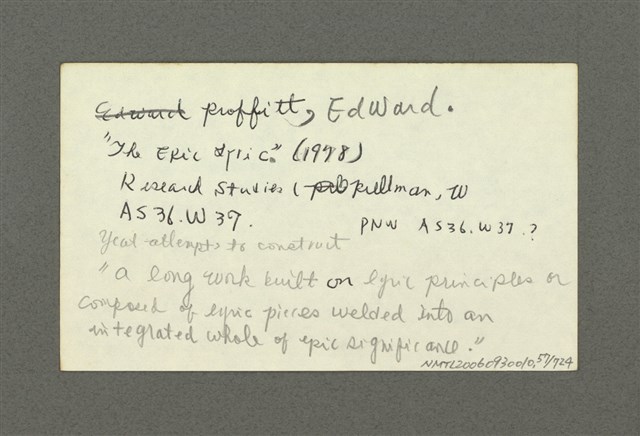 Edward proffitt, Edward.
"The Epic Lyric." (1978)
Research Studies (Pullman, W
AS36.W37.
PNW AS36.W37.?
Yeat attempts to construct
"a long work built on lyric principles or
composed of lyric pieces welded into an
integrated whole of epic significance."
NMTL20060930010,57/724